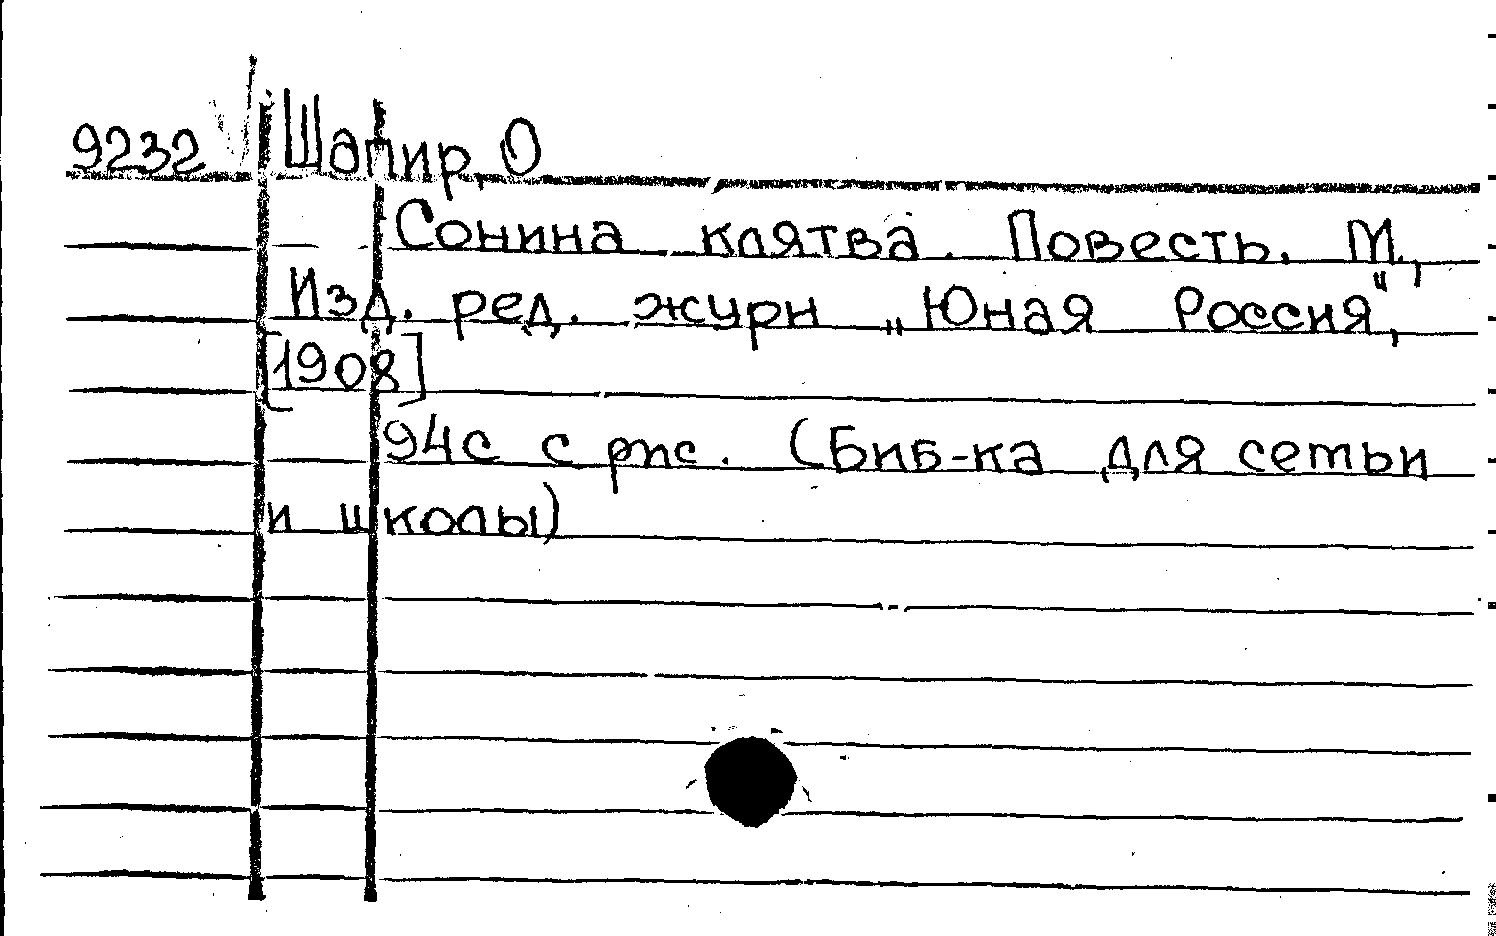 9232 Шапир, О
Сонина клятва. Повесть. М.,
Изд. ред. журн „Юная Россия",
[1908]
94с с рис. (Биб-ка для семьи
и школы)